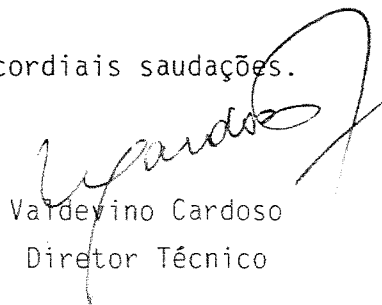 cordiais saudações.
VCardoso
Valdevino Cardoso
Diretor Técnico